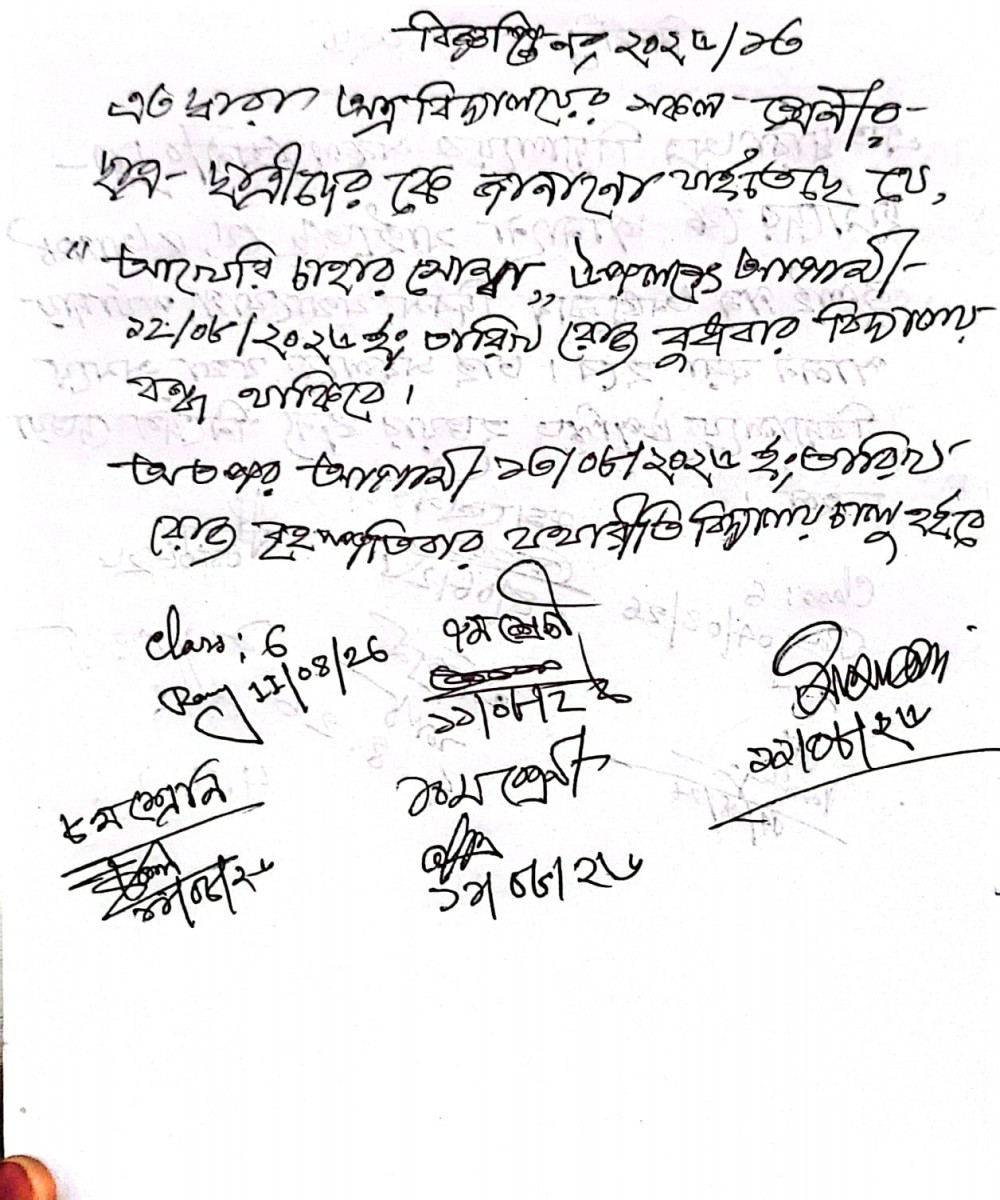 বিজ্ঞপ্তি নং ২০২৬/১৩
এত দ্বারা অত্র বিদ্যালয়ের সকল শ্রেনীর
ছাত্র-ছাত্রীদের কে জানানো যাইতেছে যে,
"আখেরি চাহার সোম্বা" উপলক্ষ্যে আগামী
১২/০৮/২০২৬ ইং তারিখ রোজ বুধবার বিদ্যালয়
বন্ধ থাকিবে।
অতপর আগামী ১৩/০৮/২০২৬ ইং তারিখ
রোজ বৃহস্পতিবার যথারীতি বিদ্যালয় চালু হইবে
Class: 6
11/08/26
৭ম শ্রেণী
১১/০৮/২৬
১১/০৮/২৬
৮ম শ্রেনি
১১/০৮/২৬
১০ম শ্রেণী
১১/০৮/২৬